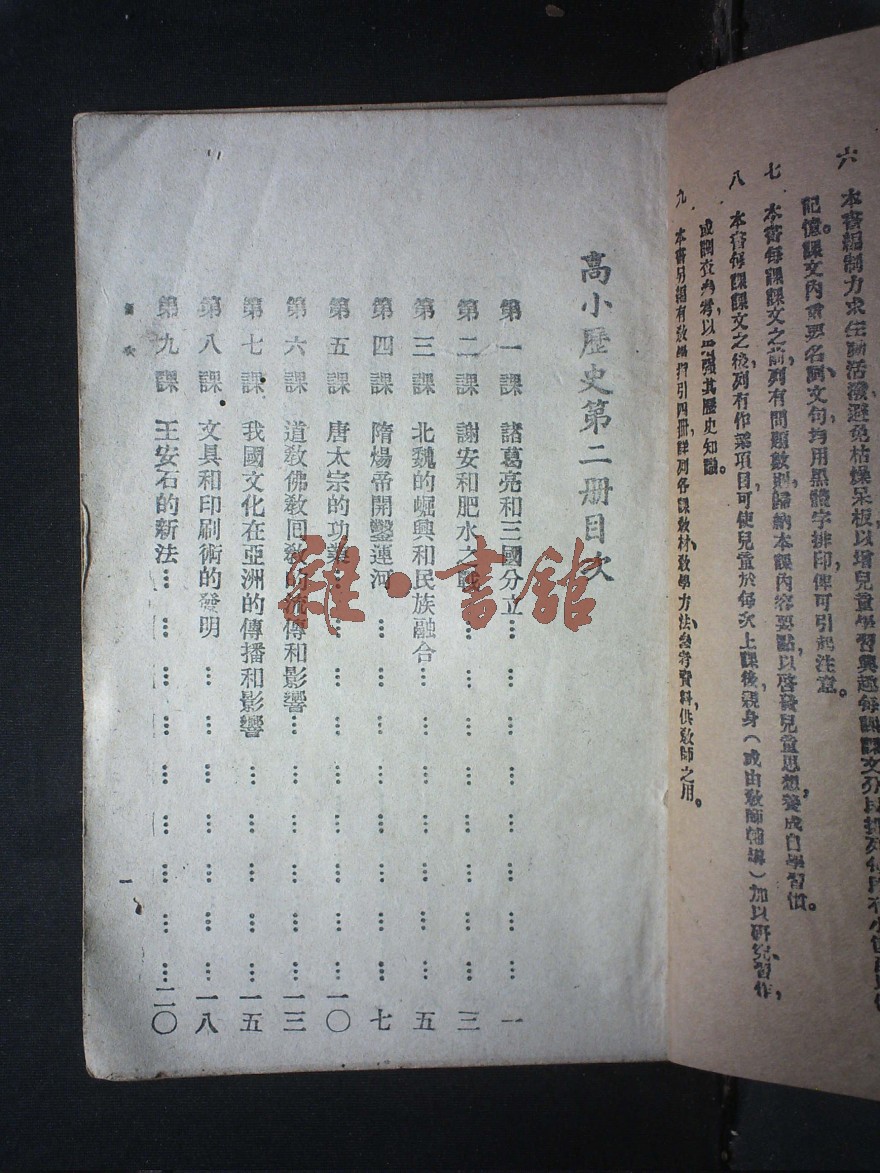 六　本書編制力求生動活潑避免枯燥呆板以增兒童學習興趣每課課文分段排列每段有小
記憶課文內重要名詞文句均用黑體字排印俾可引起注意。
七　本書每課課文之前列有問題數則歸納本課內容要點以啓發兒童思想養成自學習慣。
八　本書每課課文之後列有作業項目可使兒童於每次上課後，親身（或由敎師輔導）加以研究、習作，
或調查參考以增強其歷史知識。
九　本書另編有敎學指引四冊詳列各課敎材敎學方法參考資料供敎師之用。
高小歷史第二册目次
第一課　諸葛亮和三國分立…………………一
第二課　謝安和肥水之戰…………………三
第三課　北魏的崛興和民族融合…………………五
第四課　隋煬帝開鑿運河…………………七
第五課　唐太宗的功業…………………一〇
第六課　道敎佛敎回敎的流傳和影響…………………一三
第七課　我國文化在亞洲的傳播和影響…………………一五
第八課　文具和印刷術的發明…………………一八
第九課　王安石的新法…………………二〇
目次
一
雜·書館